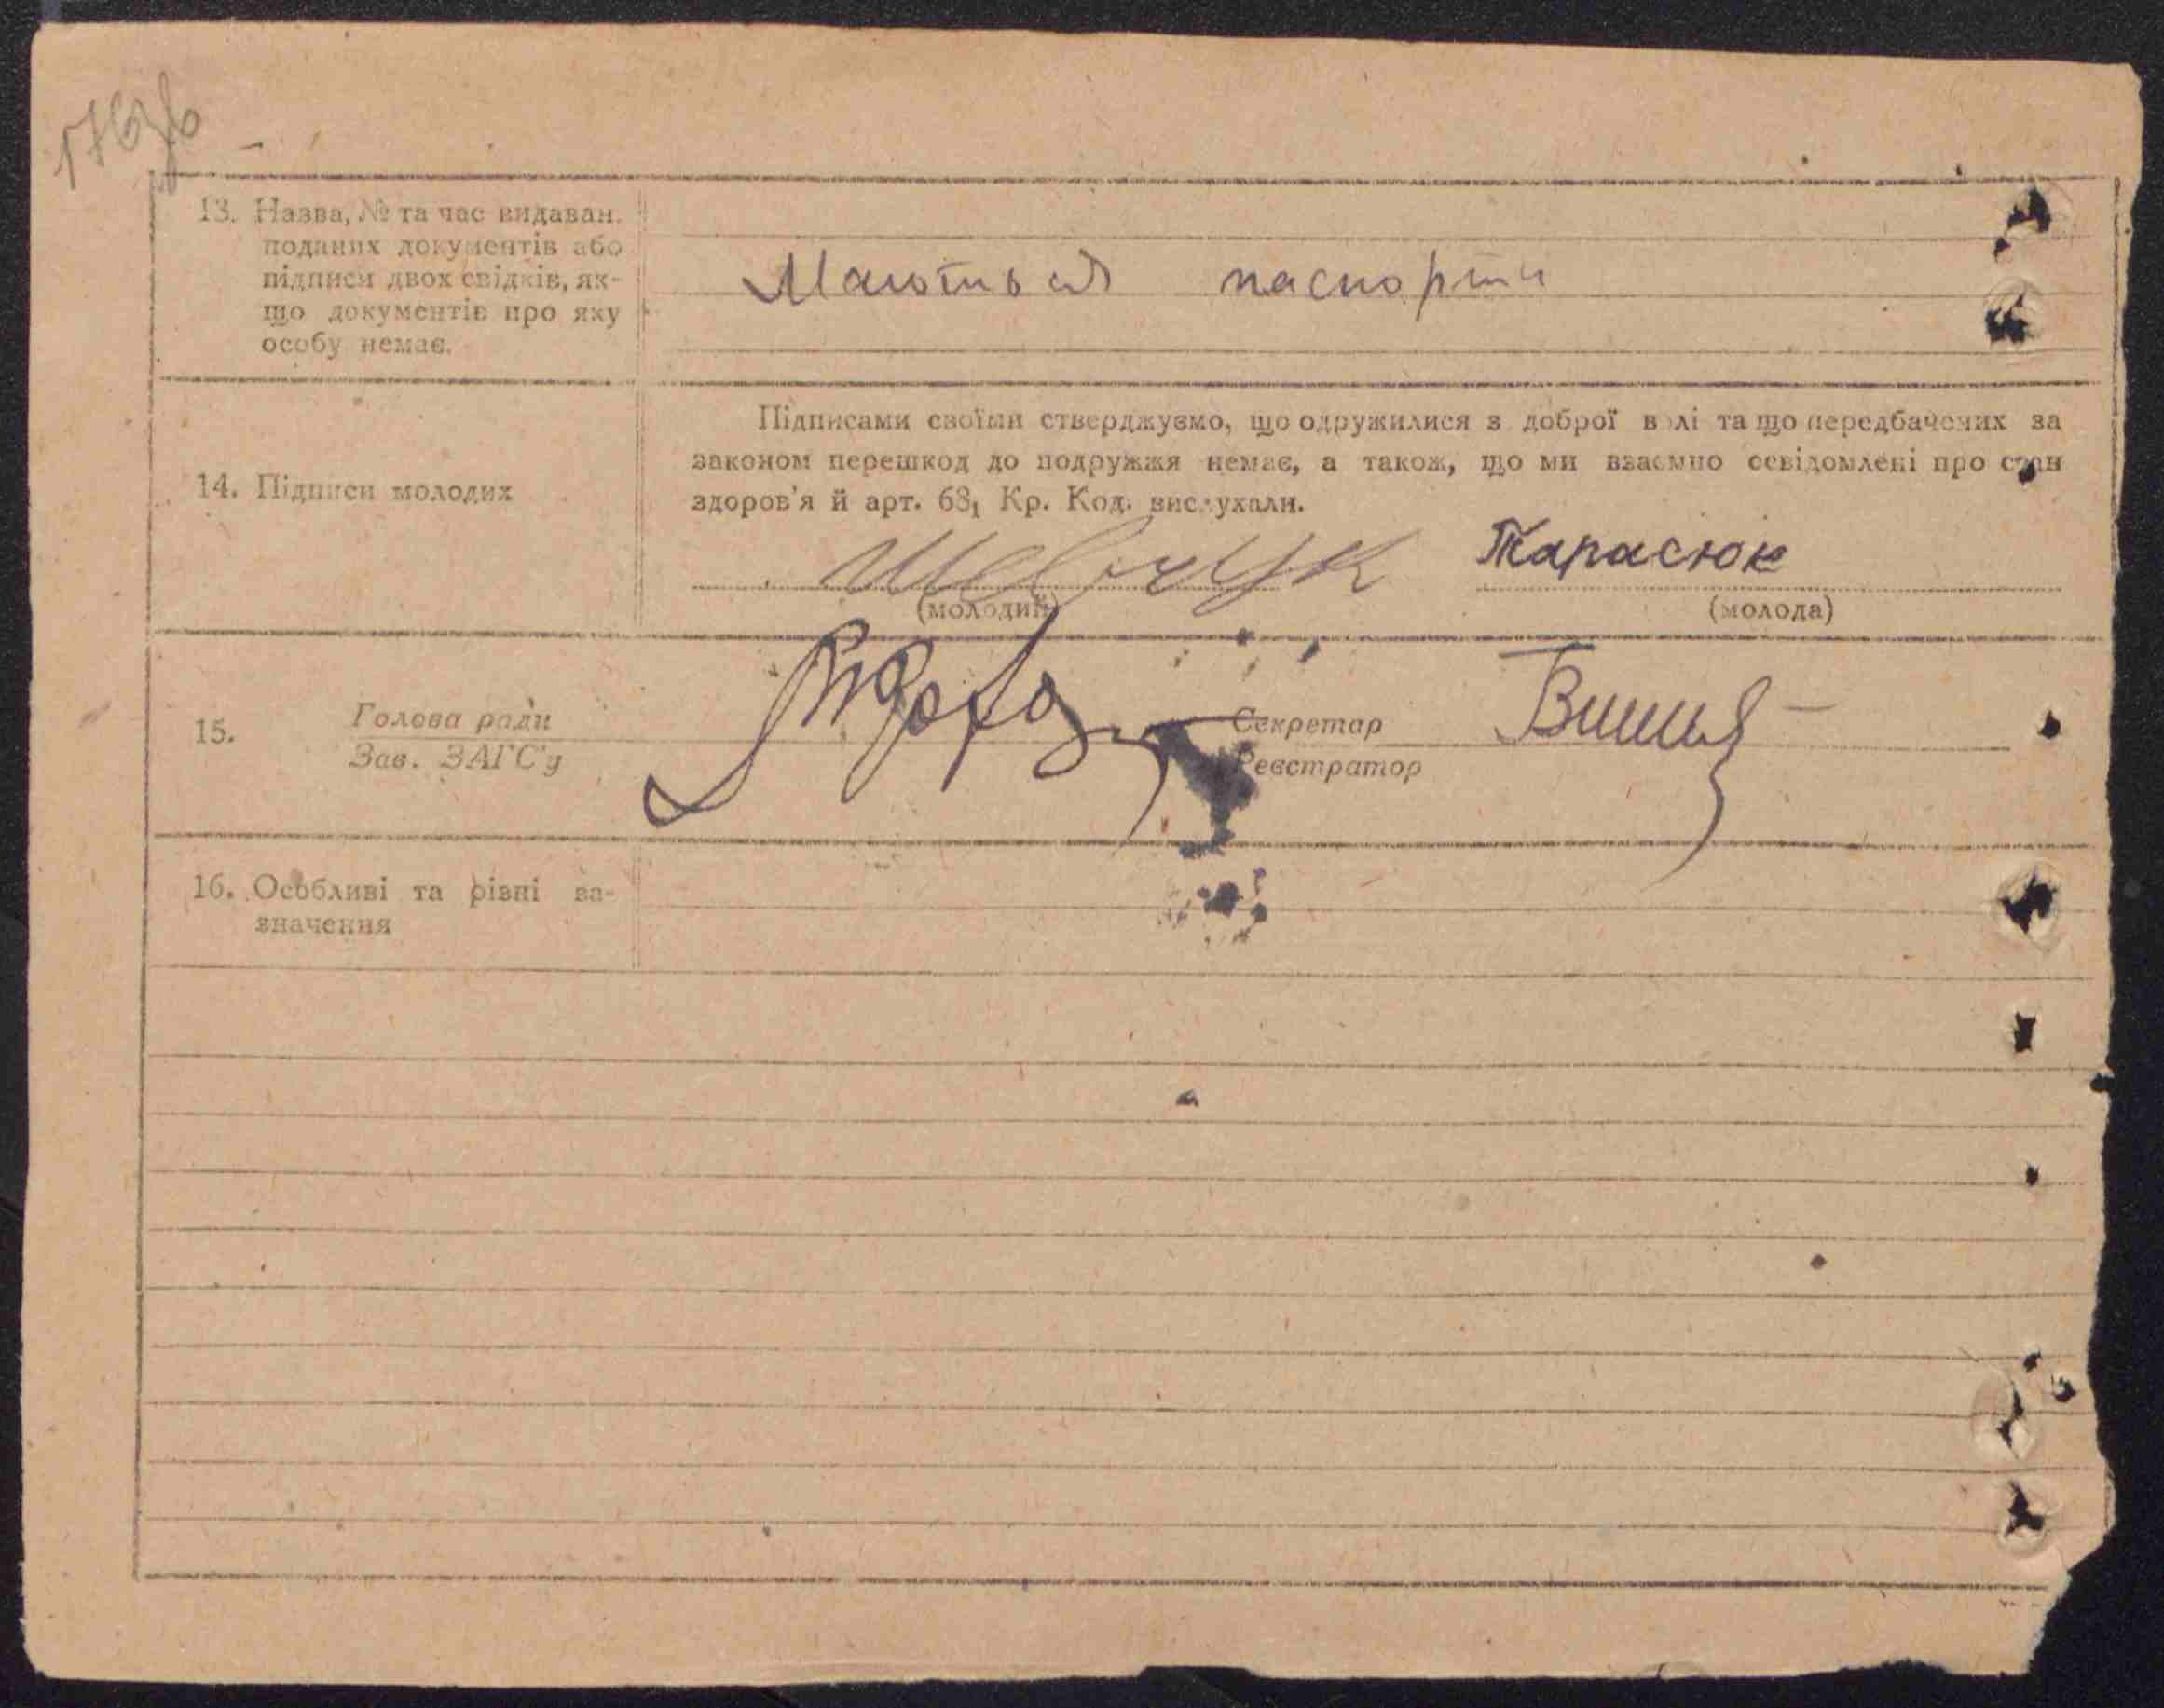 13. Назва, № та час видаван.
поданих документів або
підписи двох свідків, як-
що документів про яку
особу немає.
Маються паспорти
Підписами своїми стверджуємо, що одружилися з доброї волі та що передбачених за
законом перешкод до подружжя немає, а також, що ми взаємно освідомлені про стан
здоров'я й арт. 68₁ Кр. Код. вислухали.
14. Підписи молодих
Шевчук Тарасюк
(молодий) (молода)
15. Голова ради Секретар
Зав. ЗАГС'у Реєстратор
16. Особливі та різні за-
значення